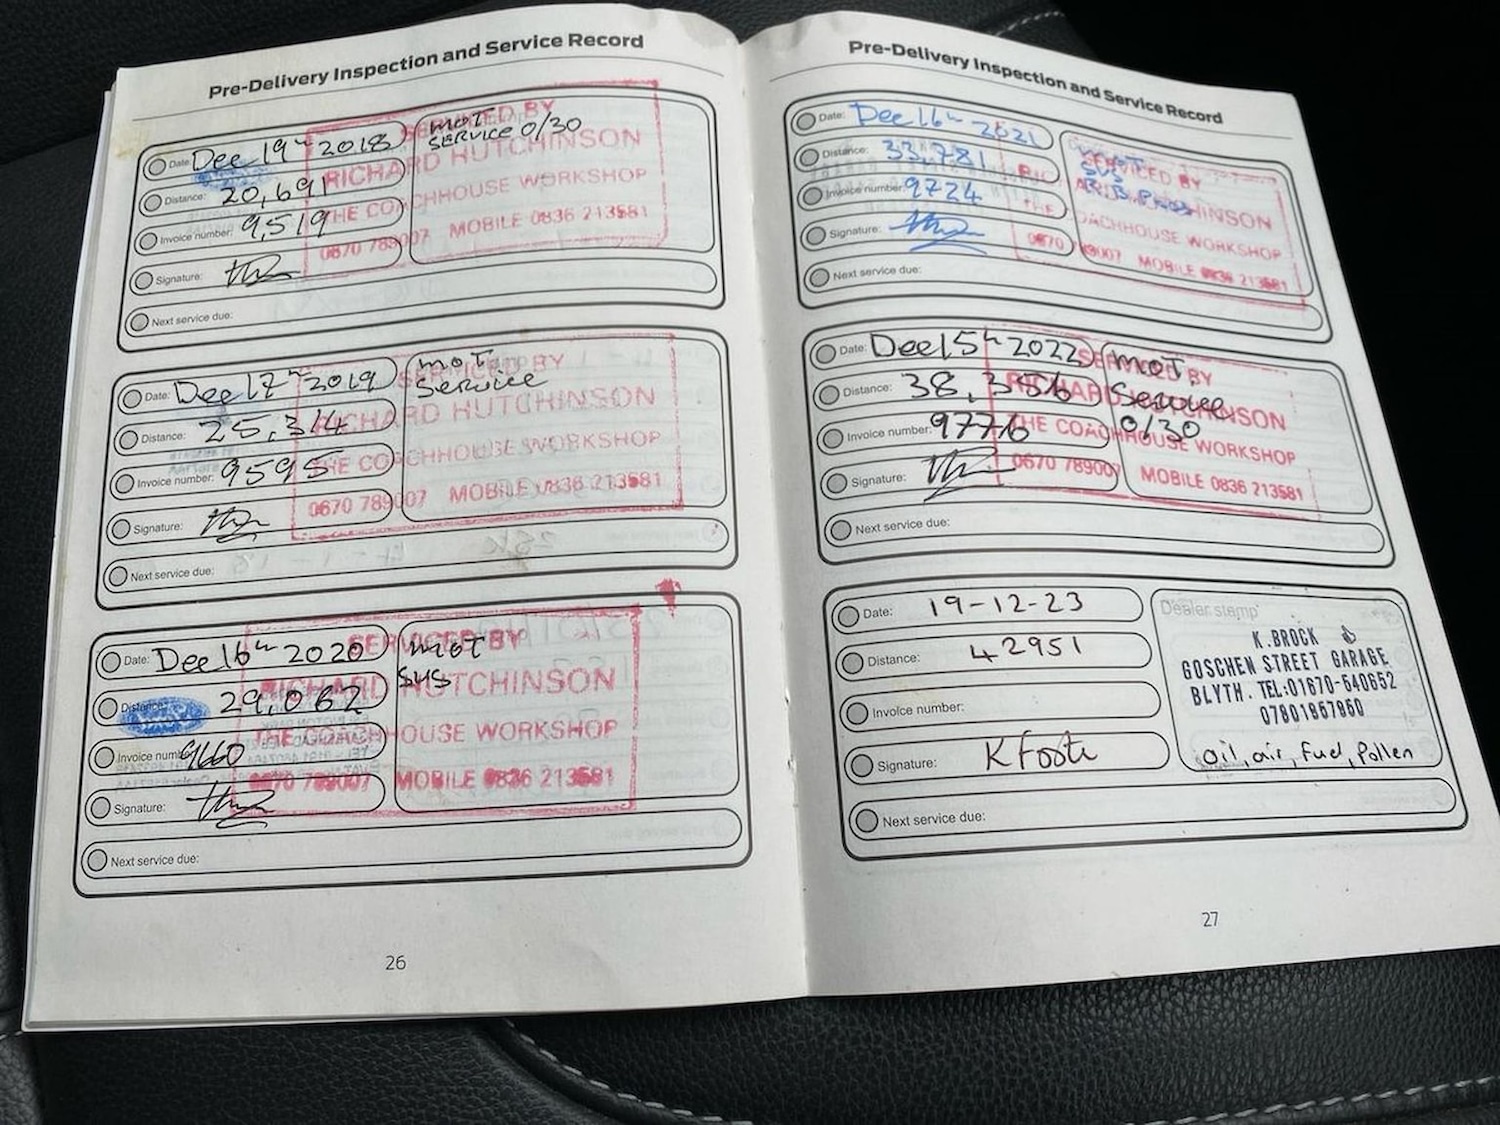 Pre-Delivery Inspection and Service Record
Date: Dec 19th 2018
Distance: 20,691
Invoice number: 9,519
Signature:
Next service due:
MOT
SERVICE 0/30
SERVICED BY
RICHARD HUTCHINSON
THE COACHHOUSE WORKSHOP
0670 789007 MOBILE 0836 213581
Date: Dec 17th 2019
Distance: 25,314
Invoice number: 9595
Signature:
Next service due:
MOT
Service
SERVICED BY
RICHARD HUTCHINSON
THE COACHHOUSE WORKSHOP
0670 789007 MOBILE 0836 213581
Date: Dec 16th 2020
Distance: 29,062
Invoice number: 9660
Signature:
Next service due:
MOT
SVS
SERVICED BY
RICHARD HUTCHINSON
THE COACHHOUSE WORKSHOP
0670 789007 MOBILE 0836 213581
26
Pre-Delivery Inspection and Service Record
Date: Dec 16th 2021
Distance: 33,781
Invoice number: 9724
Signature:
Next service due:
SVS
SERVICED BY
HUTCHINSON
THE COACHHOUSE WORKSHOP
0670 789007 MOBILE 0836 213581
Date: Dec 15th 2022
Distance: 38,356
Invoice number: 9776
Signature:
Next service due:
MOT
Service
0/30
SERVICED BY
RICHARD HUTCHINSON
THE COACHHOUSE WORKSHOP
0670 789007 MOBILE 0836 213581
Date: 19-12-23
Distance: 42951
Invoice number:
Signature: K Foote
Next service due:
Dealer stamp
K.BROCK
GOSCHEN STREET GARAGE
BLYTH. TEL:01670-540652
07801867860
Oil, air, Fuel, Pollen
27